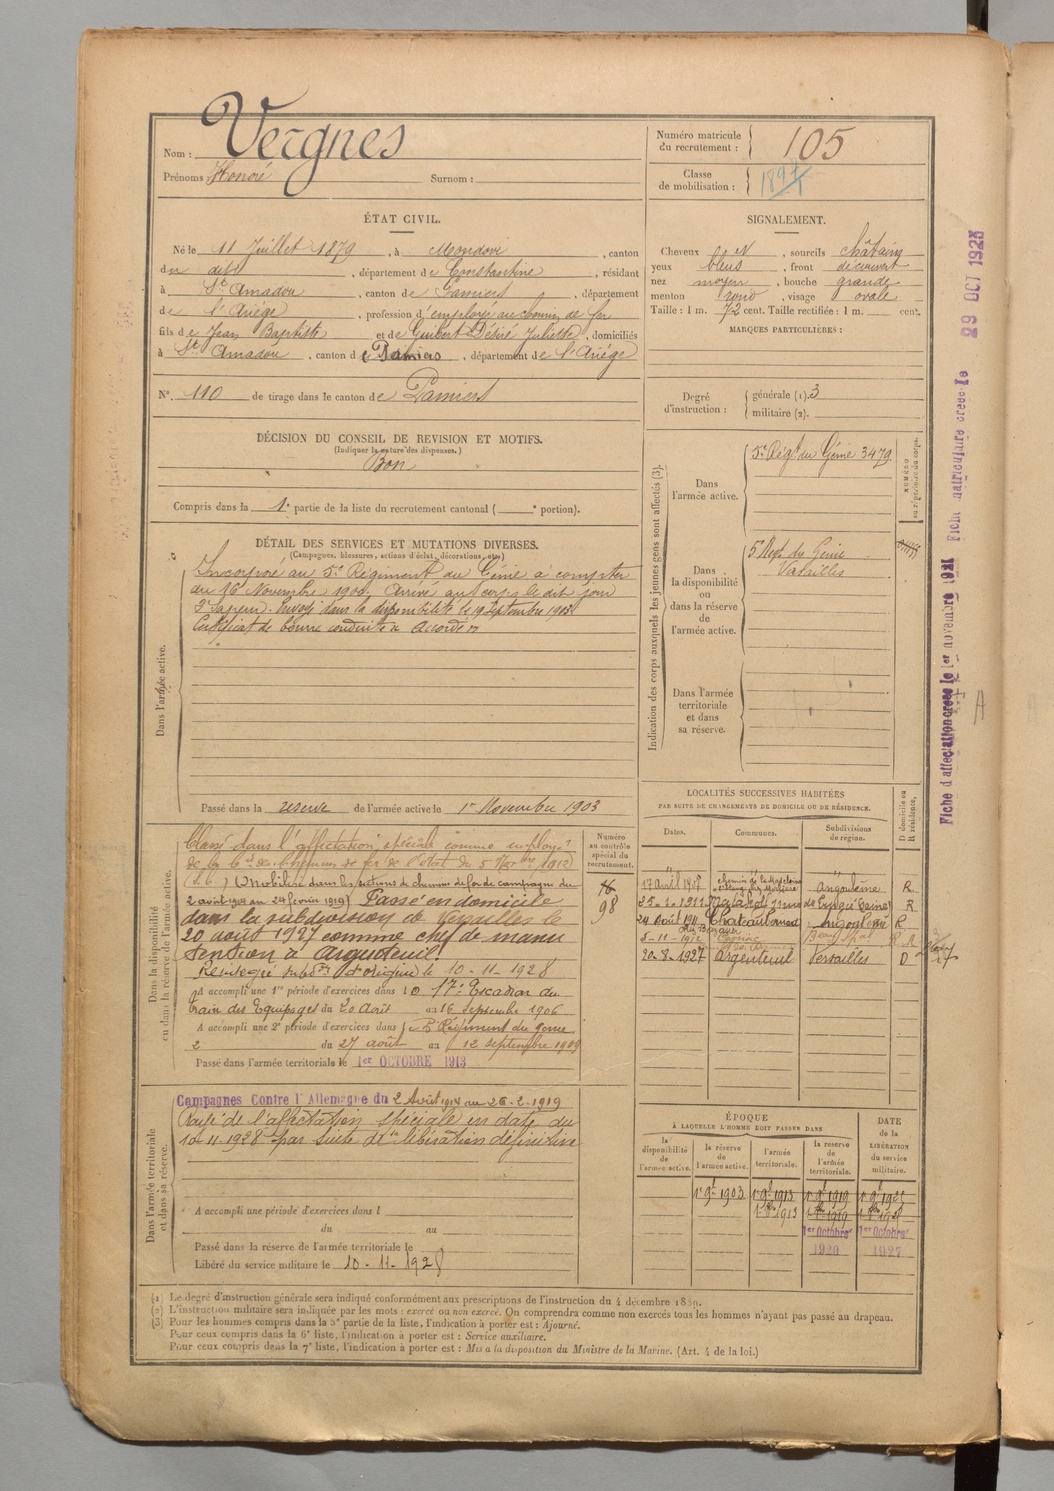 Nom : Vergnes
Prénoms : Honoré Surnom :
Numéro matricule du recrutement : 105
Classe de mobilisation : 1897
ÉTAT CIVIL.
Né le 11 Juillet 1879, à Mondovi, canton
du dit, département de Constantine, résidant
à St Amadou, canton de Pamiers, département
de l'Ariège, profession d'employé au chemin de fer
fils de Jean Baptiste et de Guibert Désiré Juliette, domiciliés
à St Amadou, canton de Pamiers, département de l'Ariège
N° 110 de tirage dans le canton de Pamiers
SIGNALEMENT.
Cheveux bl N, sourcils châtains
yeux bleus, front découvert
nez moyen, bouche grande
menton rond, visage ovale
Taille : 1 m. 72 cent. Taille rectifiée : 1 m. cent.
MARQUES PARTICULIÈRES :
Degré d'instruction : générale (1). 3
militaire (2).
DÉCISION DU CONSEIL DE REVISION ET MOTIFS.
(Indiquer la nature des dispenses.)
Bon
Compris dans la 1e partie de la liste du recrutement cantonal ( e portion).
DÉTAIL DES SERVICES ET MUTATIONS DIVERSES.
(Campagnes, blessures, actions d'éclat, décorations, etc.)
Dans l'armée active.
Incorporé au 5e Régiment du Génie à compter
du 16 Novembre 1900. Arrivé au corps le dit jour
2e Sapeur. Envoyé dans la disponibilité le 19 Septembre 1903.
Certificat de bonne conduite accordé
Passé dans la réserve de l'armée active le 1er Novembre 1903
Indication des corps auxquels les jeunes gens sont affectés (3).
NUMÉRO au répertoire du corps.
Dans l'armée active.
5e Régt du Génie 3479
Dans la disponibilité ou dans la réserve de l'armée active.
5e Regt du Génie
Versailles
Dans l'armée territoriale et dans sa réserve.
LOCALITÉS SUCCESSIVES HABITÉES
PAR SUITE DE CHANGEMENTS DE DOMICILE OU DE RÉSIDENCE.
Dates. Communes. Subdivisions de région. D domicile ou R résidence.
17 avril 1908 Angoulême R
25-1-1911 R
24 Août 1911 Chateaubernard Angoulême R
5-11-1912 R
20-8-1927 Argenteuil Versailles D
Dans la disponibilité ou dans la réserve de l'armée active.
Numéro au contrôle spécial du recrutement.
16
98
Classé dans l'affectation spéciale comme employé
de la Cie des chemins de fer de l'état du 5 9bre 1912
Mobilisé dans les sections de chemins de fer de campagne du
2 août 1914 au 24 février 1919) Passé en domicile
dans la subdivision de Versailles le
20 août 1927 comme chef de manu
tension à Argenteuil.
Réintégré subdon d'origine le 10-11-1928
A accompli une 1re période d'exercices dans le 17e Escadron du
train des Equipages du 20 Août au 16 septembre 1906
A accompli une 2e période d'exercices dans le 2e Régiment du génie
du 27 août au 12 septembre 1909
Passé dans l'armée territoriale le 1er OCTOBRE 1913
Dans l'armée territoriale et dans sa réserve.
Campagnes Contre l'Allemagne du 2 Août 1914 au 26-2-1919
Rayé de l'affectation spéciale en date du
10-11-1928 par suite de libération définitive
A accompli une période d'exercices dans l
du au
Passé dans la réserve de l'armée territoriale le
Libéré du service militaire le 10-11-1928
ÉPOQUE
À LAQUELLE L'HOMME DOIT PASSER DANS
la disponibilité de l'armée active. la réserve de l'armée active. l'armée territoriale. la réserve de l'armée territoriale. DATE de la LIBÉRATION du service militaire.
1er 9bre 1903 1er 9bre 1913 1er 9bre 1919 1er 9bre 1925
1er Octobre 1920 1er Octobre 1927
(1) Le degré d'instruction générale sera indiqué conformément aux prescriptions de l'instruction du 4 décembre 1889.
(2) L'instruction militaire sera indiquée par les mots : exercé ou non exercé. On comprendra comme non exercés tous les hommes n'ayant pas passé au drapeau.
(3) Pour les hommes compris dans la 5e partie de la liste, l'indication à porter est : Ajourné.
Pour ceux compris dans la 6e liste, l'indication à porter est : Service auxiliaire.
Pour ceux compris dans la 7e liste, l'indication à porter est : Mis à la disposition du Ministre de la Marine. (Art. 4 de la loi.)
Fiche d'affectation créée le 1er novembre 1921 Fiche matriculaire créée le 29 OCT 1925
A